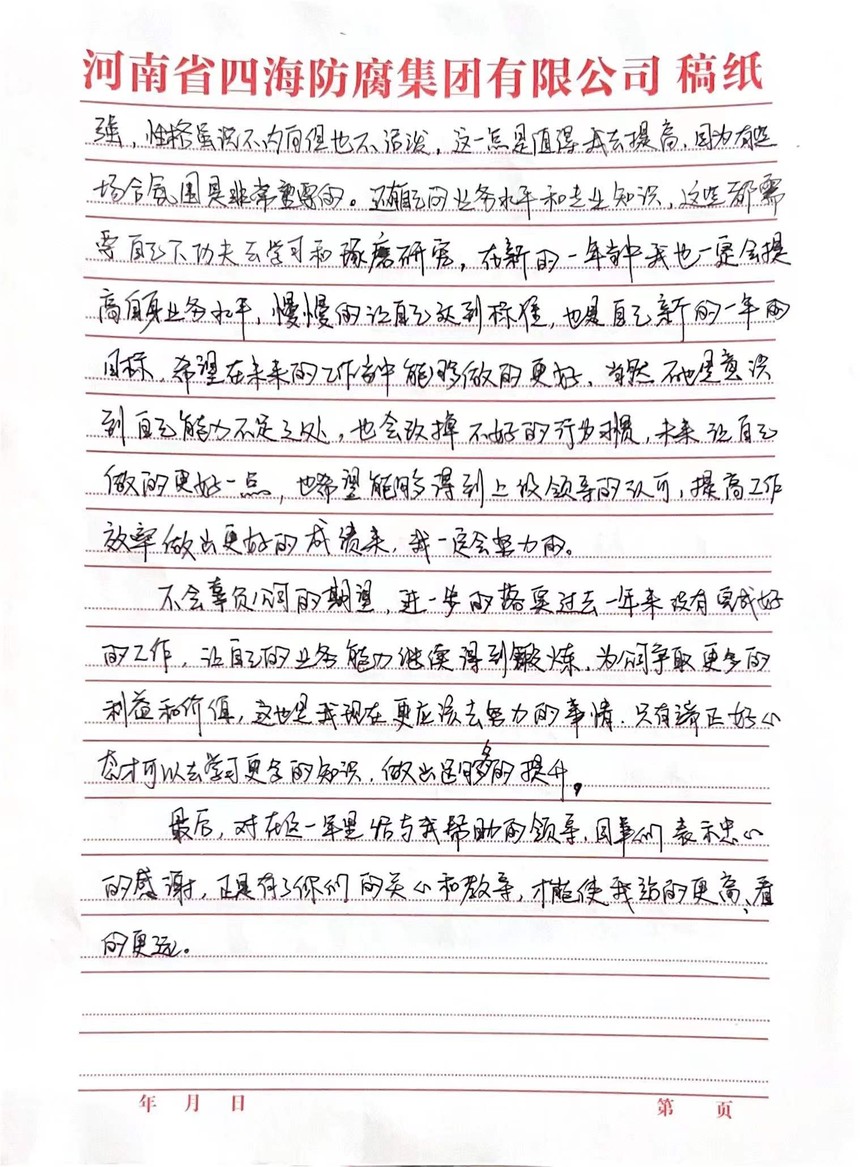 河南省四海防腐集团有限公司 稿纸
强，性格虽说不内向但也不活泼，这一点是值得我去提高，因为有些
场合氛围是非常重要的。还有自己的业务水平和专业知识，这些都需
要自己下功夫去学习和琢磨研究，在新的一年当中我也一定会提
高自身业务水平，慢慢的让自己达到标准，也是自己新的一年的
目标，希望在未来的工作当中能够做的更好，当然 也是意识
到自己能力不足之处，也会改掉不好的行为习惯，未来让自己
做的更好一点，也希望能够得到上级领导的认可，提高工作
效率做出更好的成绩来，我一定会努力的。
不会辜负公司的期望，进一步的落实过去一年来没有完成好
的工作，让自己的业务能力继续得到锻炼，为公司争取更多的
利益和价值，这也是我现在更应该去努力的事情，只有端正好心
态才可以去学习更多的知识，做出足够多的提升。
最后，对在这一年里给与我帮助的领导，同事们表示忠心
的感谢，正是有了你们的关心和教导，才能使我站的更高、看
的更远。
年 月 日
第 页